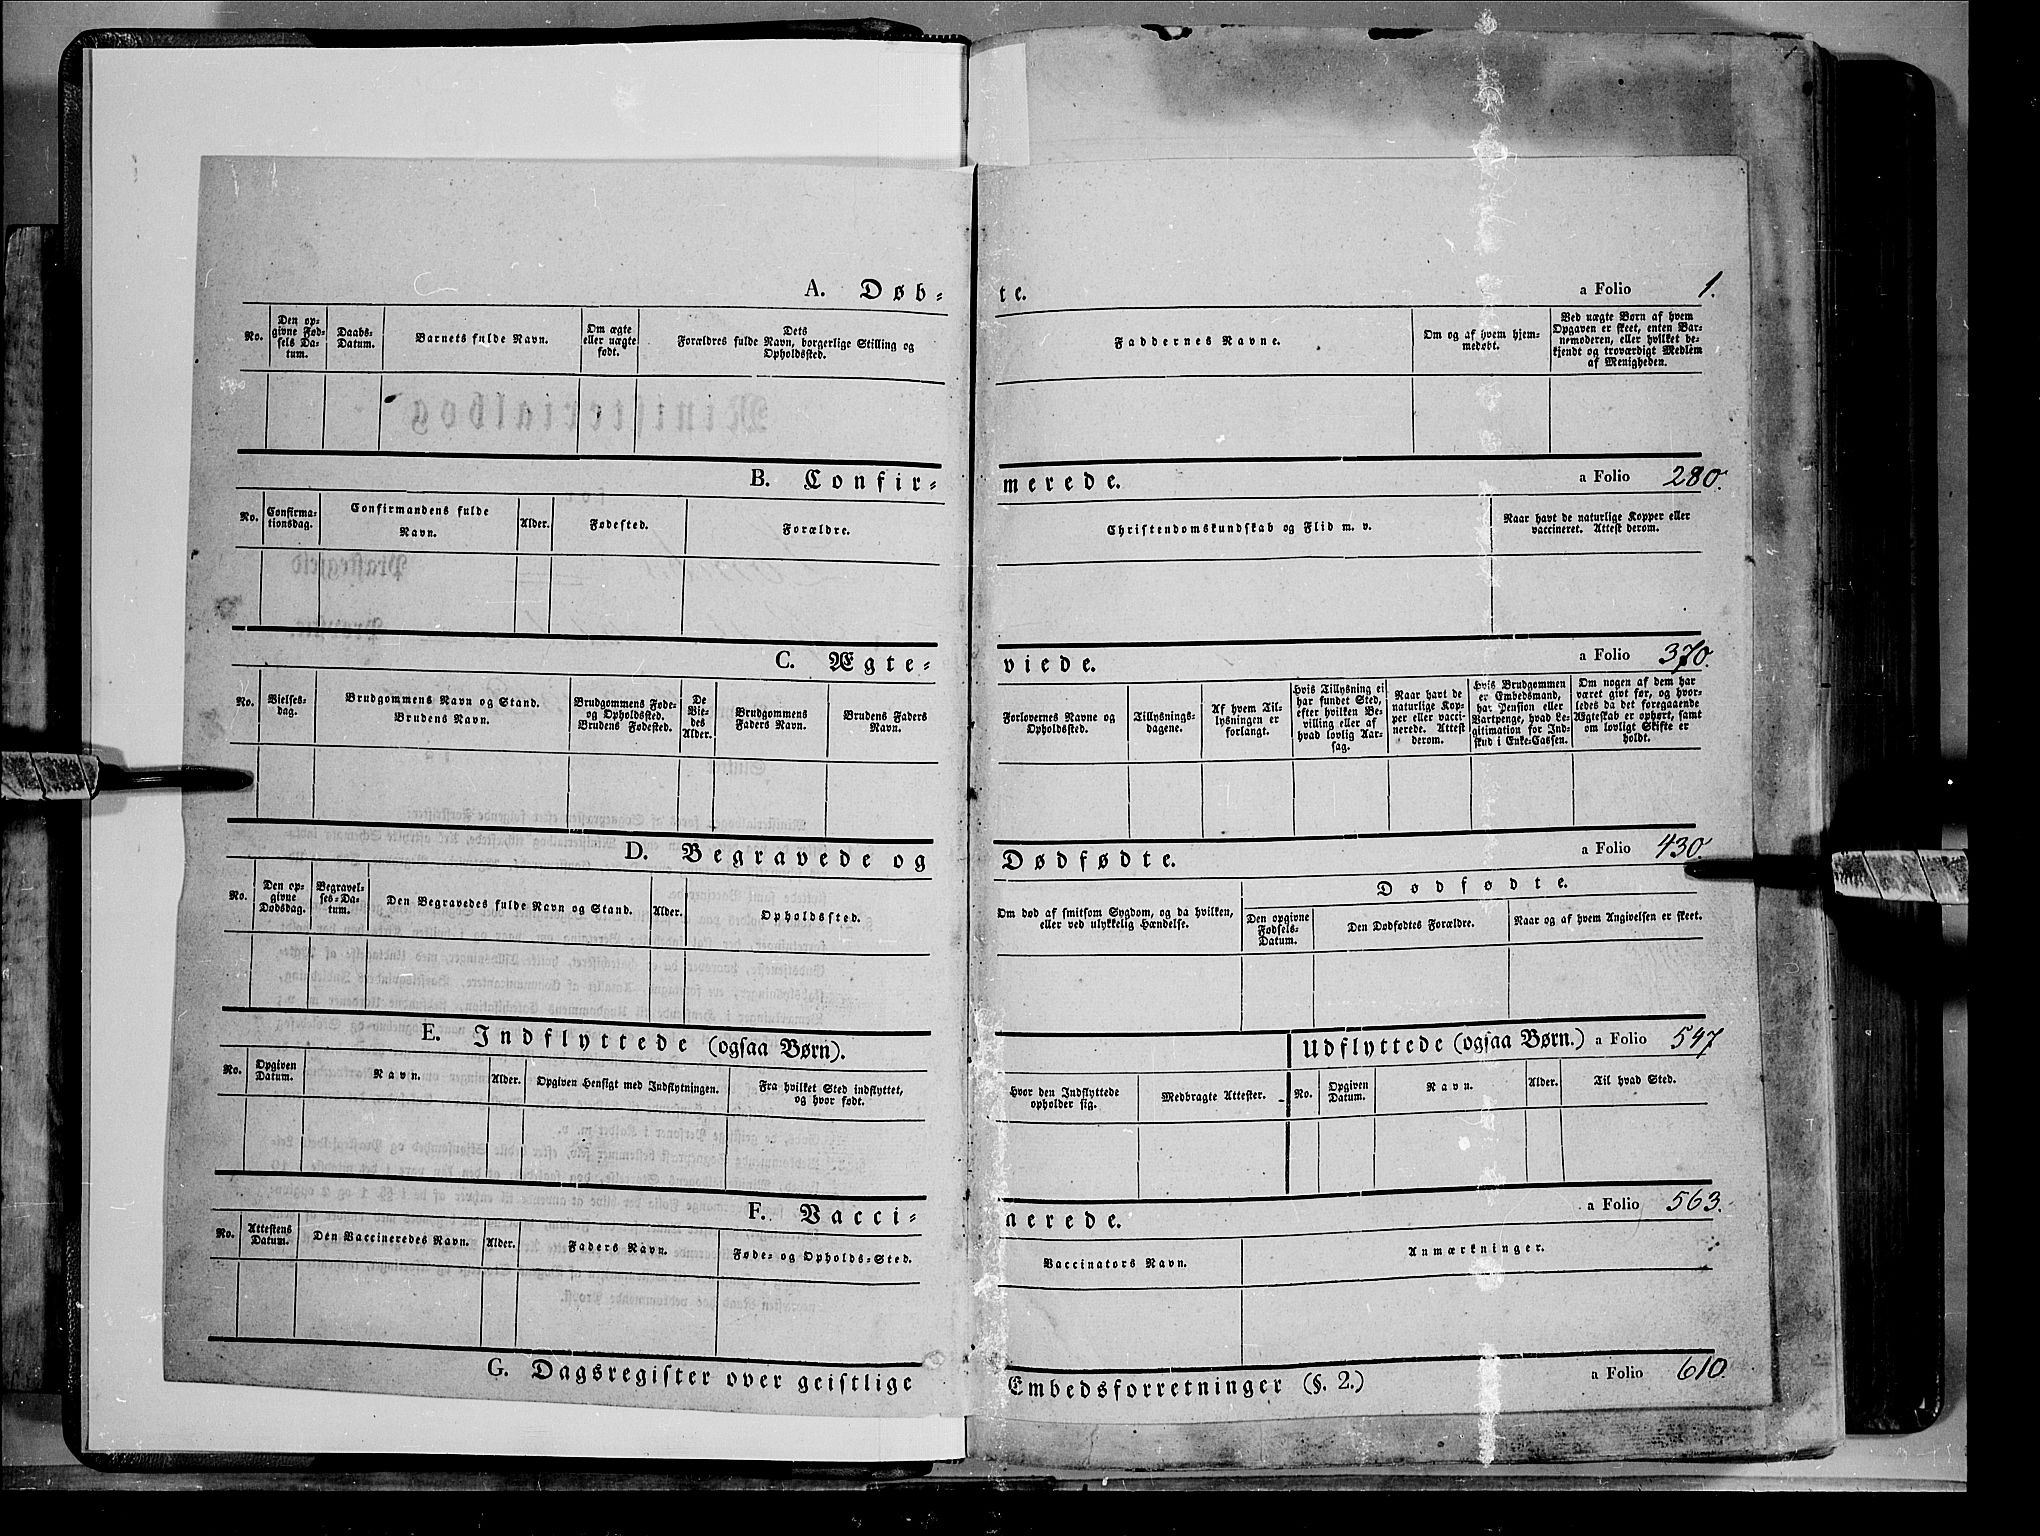 A. Døb-te. a Folio 1.
No. Den opgivne Fødsels Datum. Daabs-Datum. Barnets fulde Navn. Om ægte eller uægte født. Dets Forældres fulde Navn, borgerlige Stilling og Opholdsted. Faddernes Navne. Om og af hvem hjemmedøbt. Ved uægte Børn af hvem Opgaven er skeet, enten Barnemoderen, eller hvilket bekjendt og troværdigt Medlem af Menigheden.
B. Confir-merede. a Folio 280.
No. Confirmationsdag. Confirmandens fulde Navn. Alder. Fødested. Forældre. Christendomskundskab og Flid m. v. Naar havt de naturlige Kopper eller vaccineret. Attest derom.
C. Ægte-viede. a Folio 370.
No. Vielsesdag. Brudgommens Navn og Stand. Brudens Navn. Brudgommens Føde- og Opholdsted. Brudens Fødested. De Viedes Alder. Brudgommens Faders Navn. Brudens Faders Navn. Forlovernes Navne og Opholdsted. Tillysningsdagene. Af hvem Tillysningen er forlangt. Hvis Tillysning ei har fundet Sted, efter hvilken Bevilling eller af hvad lovlig Aarsag. Naar havt de naturlige Kopper eller vaccinerede. Attest derom. Hvis Brudgommen er Embedsmand, har Pension eller Vartpenge, hvad Legitimation for Indskud i Enke-Cassen. Om nogen af dem har været givt før, og hvorledes da det foregaaende Ægteskab er ophørt, samt om lovligt Skifte er holdt.
D. Begravede og Dødfødte. a Folio 430.
No. Den opgivne Dødsdag. Begravelses-Datum. Den Begravedes fulde Navn og Stand. Alder. Opholdssted. Om død af smitsom Sygdom, og da hvilken, eller ved ulykkelig Hændelse. Dødfødte. Den opgivne Fødsels-Datum. Den Dødfødtes Forældre. Naar og af hvem Angivelsen er skeet.
E. Indflyttede (ogsaa Børn). Udflyttede (ogsaa Børn.) a Folio 547
No. Opgiven Datum. Navn. Alder. Opgiven Hensigt med Indflytningen. Fra hvilket Sted indflyttet, og hvor født. Hvor den Indflyttede opholder sig. Medbragte Attester. No. Opgiven Datum. Navn. Alder. Til hvad Sted.
F. Vacci-nerede. a Folio 563.
No. Attestens Datum. Den Vaccineredes Navn. Alder. Faders Navn. Føde- og Opholds-Sted. Vaccinators Navn. Anmærkninger.
G. Dagsregister over geistlige Embedsforretninger (§. 2.) a Folio 610.